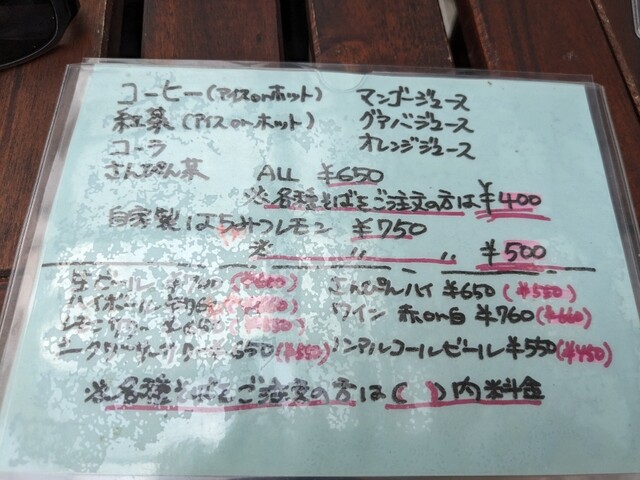 コーヒー(アイスorホット) マンゴージュース
紅茶(アイスorホット) グァバジュース
コーラ オレンジジュース
さんぴん茶 ALL ¥650
※各種そばをご注文の方は ¥400
自家製はちみつレモン ¥750
※ 〃 〃 ¥500
生ビール (¥600) さんぴんハイ ¥650(¥550)
ハイボール ワイン 赤or白 ¥760(¥660)
ノンアルコールビール ¥550(¥450)
※各種そばをご注文の方は( )内料金